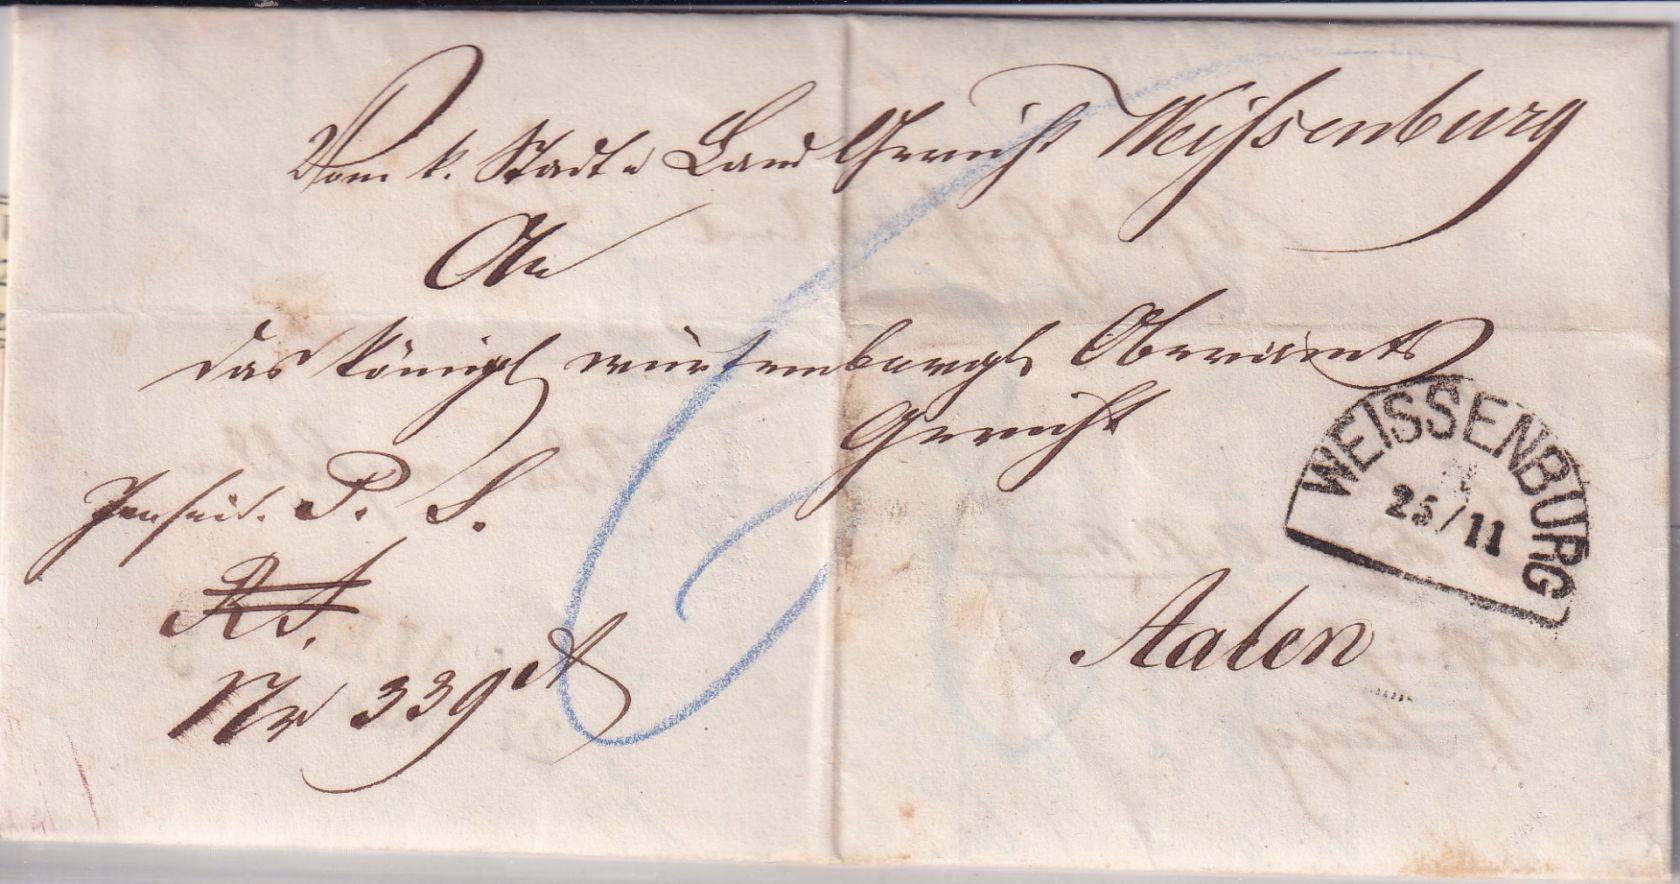 Vom k. Stadt u Land Gericht Weißenburg
An
das königl würtembergl Oberamts
Gericht
WEISSENBURG
25/11
P. S.
R. S.
Nr 339
Aalen
6